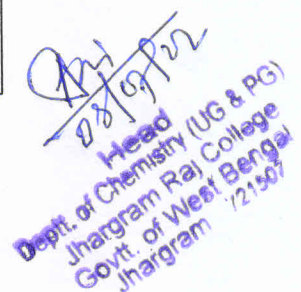 Head
Deptt. of Chemistry (UG & PG)
Jhargram Raj College
Govtt. of West Bengal
Jhargram 721507